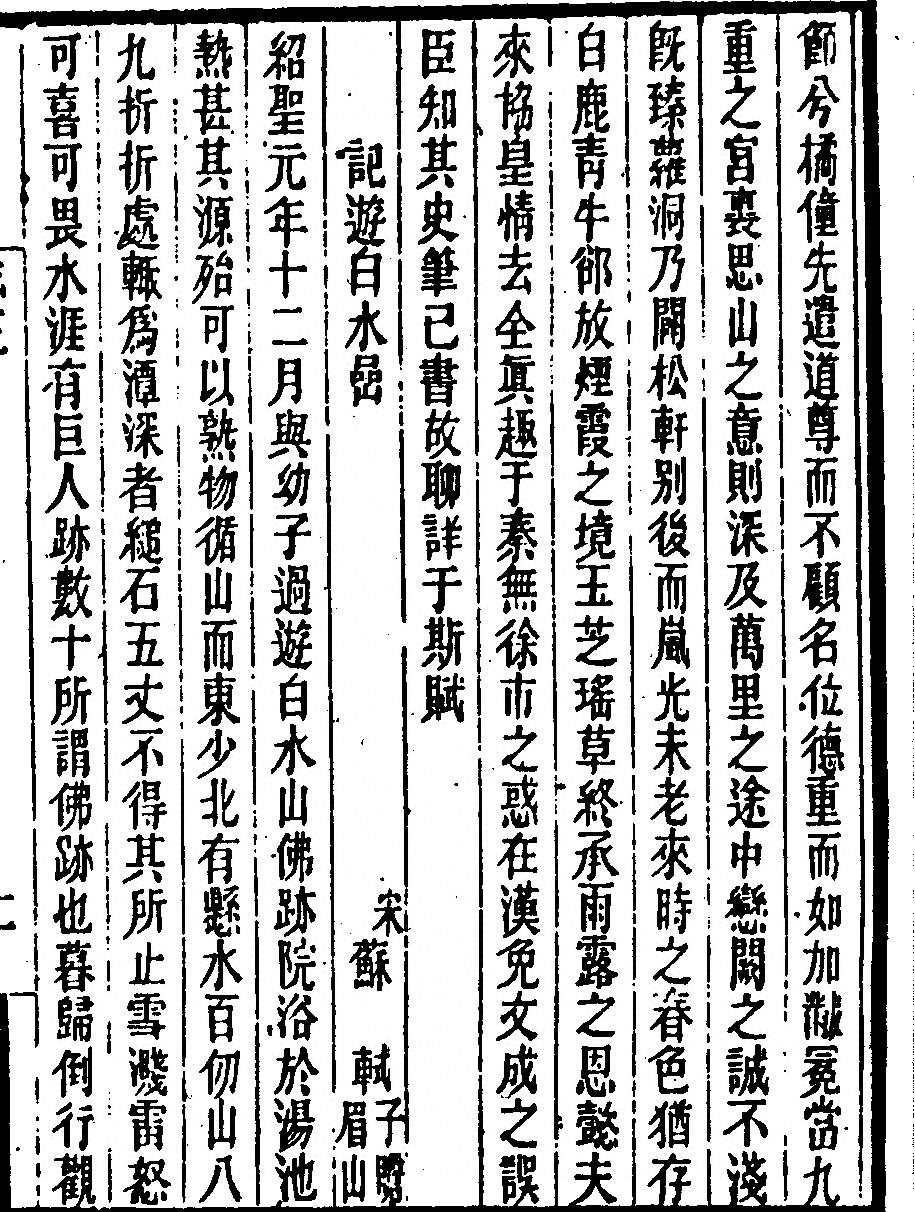 節兮橘僮先遣道尊而不顧名位德重而如加黻冕當九
重之宮裏思山之意則深及萬里之途中戀闕之誠不淺
旣臻蘿洞乃開松軒别後而嵐光未老來時之春色猶存
白鹿青牛郤放煙霞之境玉芝瑤草終承雨露之恩懿夫
來協皇情去全眞趣于秦無徐市之惑在漢免文成之誤
臣知其史筆已書故聊詳于斯賦
記遊白水嵒
宋蘇軾子瞻眉山
紹聖元年十二月與幼子過遊白水山佛跡院浴於湯池
熱甚其源殆可以熟物循山而東少北有懸水百仞山八
九折折處輙爲潭深者縋石五丈不得其所止雪濺雷怒
可喜可畏水涯有巨人跡數十所謂佛跡也暮歸倒行觀